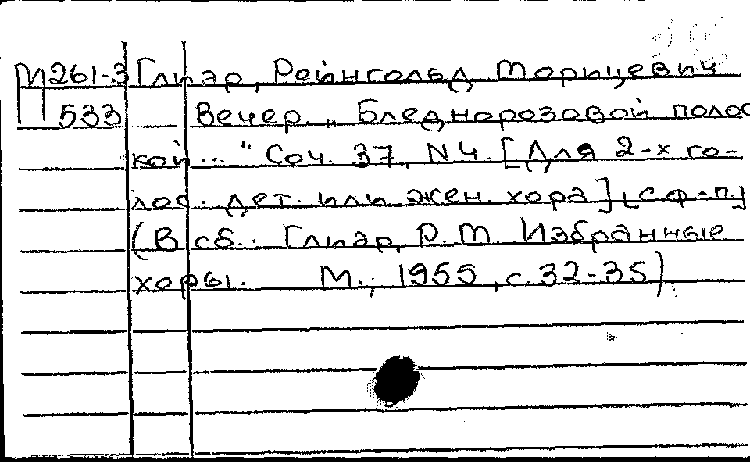 М261-3 Глиэр, Рейнгольд Морицевич
П 533 Вечер. „Бледнорозовой полос
кой..." Соч. 37, N4. [Для 2-х го-
лос. дет. или жен. хора] [с ф-п.]
(В сб.: Глиэр, Р. М. Избранные
хоры. М., 1955, с. 32-35)